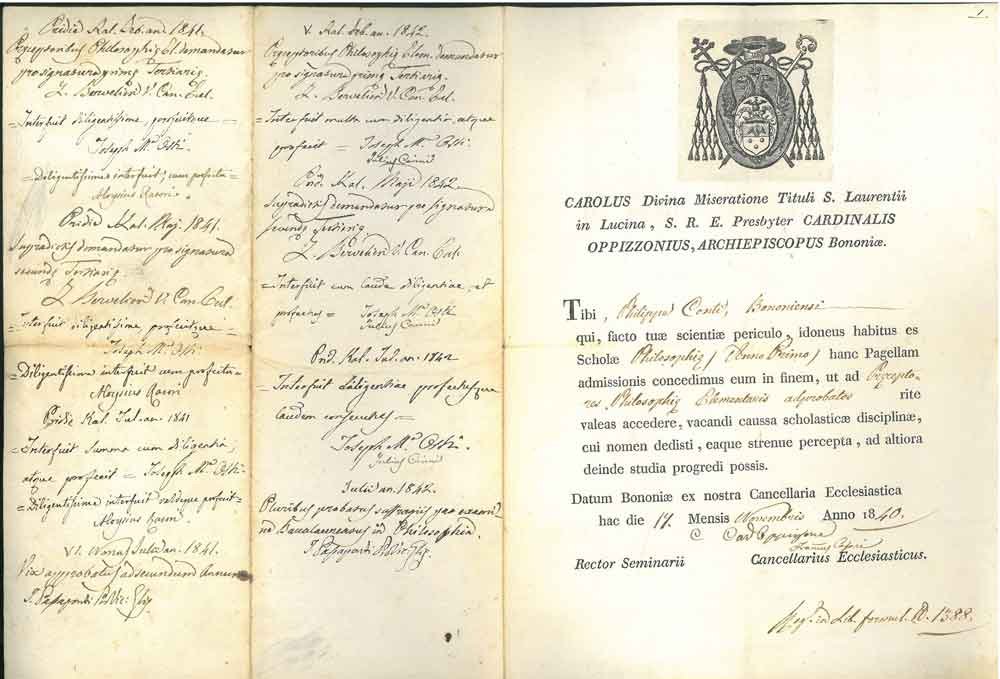 Pridie Kal. Feb. an. 1841.
Præceptoribus Philosophiæ El. demandatur
pro signatura primæ Tertiariæ.
= Interfuit diligentissime, profuitque =
Joseph M.ª
= Diligentissimus interfuit, cum profectu =
Aloysius
Pridie Kal. Maj. 1841.
Supradictis demandatur pro signatura
secundæ Tertiariæ
= Interfuit diligentissime, profuitque =
Joseph M.ª
= Diligentissime interfuit cum profectu =
Aloysius
Pridie Kal. Jul. an. 1841
= Interfuit summa cum diligentia,
atque profecit = Joseph M.ª
= Diligentissime interfuit valdeque profecit =
Aloysius
VI. Nonas Julii an. 1841.
Vix approbatus ad secundum Annum
V. Kal. Feb. an. 1842.
Præceptoribus Philosophiæ Elem. demandatur
pro signatura primæ Tertiariæ.
= Interfuit multa cum diligentia, atque
profecit = Joseph M.ª
Julius
Prid. Kal. Maji 1842
Supradictis demandatur pro signatura
secundæ Tertiariæ.
= Interfuit cum laude diligentiae, et
profectus = Joseph M.ª
Julius
Prid. Kal. Jul. an. 1842
= Interfuit diligentiae profectusque
laudem consequutus =
Joseph M.ª
Julius
Julii an. 1842.
Pluribus probatus suffragiis pro
ad Baccalaureatus in Philosophia.
1.
CAROLUS Divina Miseratione Tituli S. Laurentii
in Lucina, S. R. E. Presbyter CARDINALIS
OPPIZZONIUS, ARCHIEPISCOPUS Bononiæ.
Tibi, Philippo Conti, Bononiensi
qui, facto tuæ scientiæ periculo, idoneus habitus es
Scholæ Philosophiæ (Anno Primo) hanc Pagellam
admissionis concedimus eum in finem, ut ad Præcepto-
res Philosophiæ Elementaris adprobatos rite
valeas accedere, vacandi caussa scholasticæ disciplinæ,
cui nomen dedisti, eaque strenue percepta, ad altiora
deinde studia progredi possis.
Datum Bononiæ ex nostra Cancellaria Ecclesiastica
hac die 17. Mensis Novembris Anno 1840.
C. Card Oppizzone
Rector Seminarii Cancellarius Ecclesiasticus.
Reg. in Lib. formul. N. 1388.